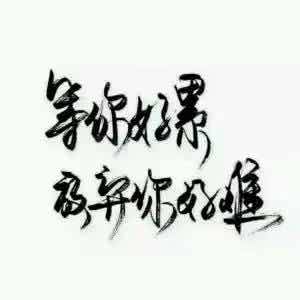 等你好累
放弃你好难